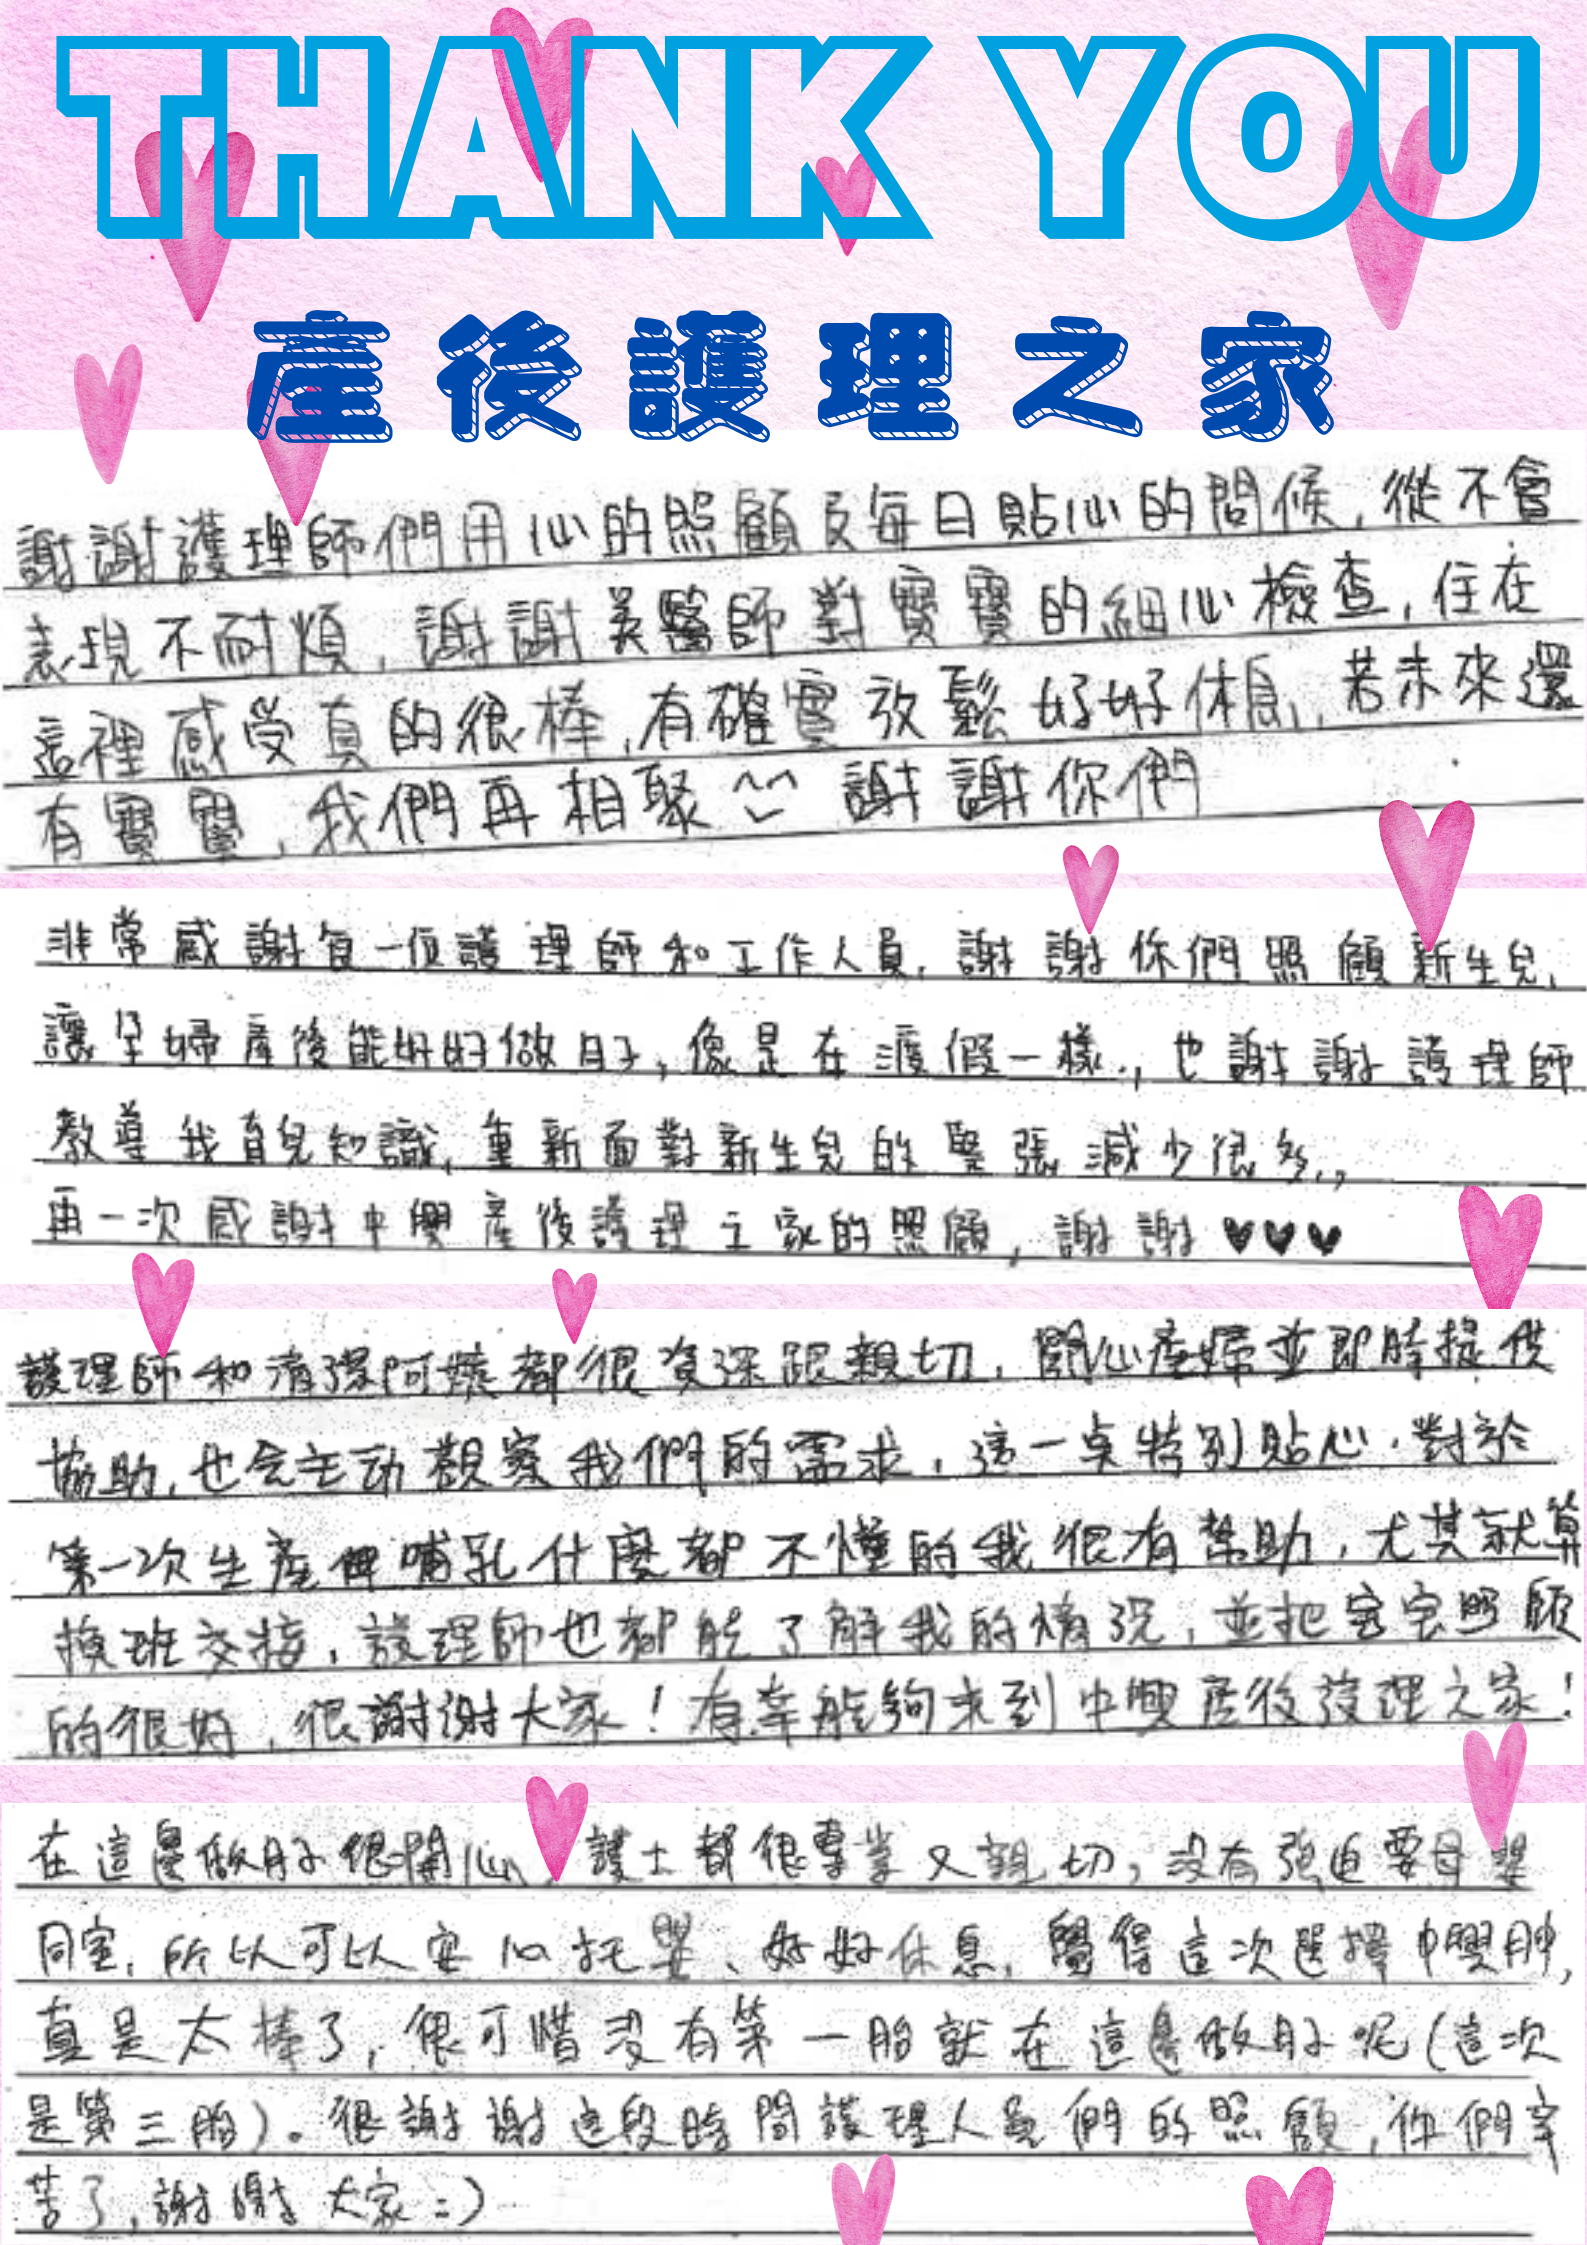 THANK YOU
產後護理之家
謝謝護理師們用心的照顧及每日貼心的問候，從不會
表現不耐煩，謝謝美醫師對寶寶的細心檢查，住在
這裡感受真的很棒，有確實放鬆好好休息，若未來還
有寶寶，我們再相聚 謝謝你們
非常感謝每一位護理師和工作人員，謝謝你們照顧新生兒，
讓孕婦產後能好好做月子，像是在渡假一樣，也謝謝護理師
教導我育兒知識，重新面對新生兒的緊張減少很多，
再一次感謝中興產後護理之家的照顧，謝謝♥♥♥
護理師和清潔阿姨都很資深跟親切，關心產婦並即時提供
協助，也会主动觀察我們的需求，這一点特別貼心，對於
第一次生產連哺乳什麼都不懂的我很有幫助，尤其就算
換班交接，護理師也都能了解我的情況，並把宝宝照顧
的很好，很謝謝大家！有幸能夠來到中興產後護理之家！
在這邊做月子很開心，護士都很專業又親切，沒有強迫要母嬰
同室，所以可以安心托嬰、好好休息，覺得這次選擇中興
真是太棒了，很可惜沒有第一胎就在這邊做月子呢(這次
是第三胎)。很謝謝這段時間護理人員們的照顧，你們辛
苦了，謝謝大家=)